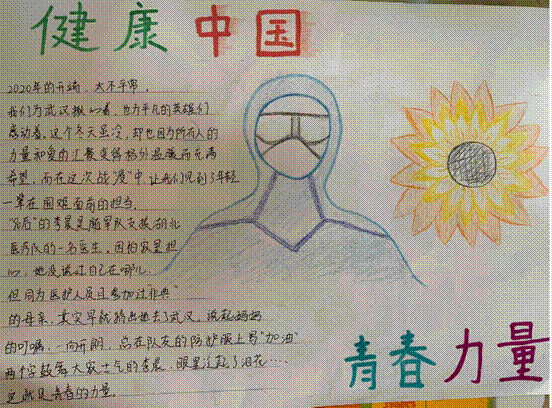 健康中国
2020年的开端,太不平常,
我们为武汉揪心着,也为平凡的英雄们
感动着,这个冬天虽冷,却也因为所有人的
力量和爱的汇聚变得格外温暖而充满
希望,而在这次战"疫"中,让我们见到了年轻
一辈在困难面前的担当,
"90后"的李晨是随军队支援湖北
医疗队的一名医生,因怕家里担
心,她没说过自己在哪儿,
但同为医护人员且参加过非典"
的母亲,其实早就猜出她去了武汉,说起妈妈
的叮嘱,一向开朗,总在队友的防护服上写"加油"
两个字鼓舞大家士气的李晨,眼里泛起了泪花……
这就是青春的力量,
青春力量